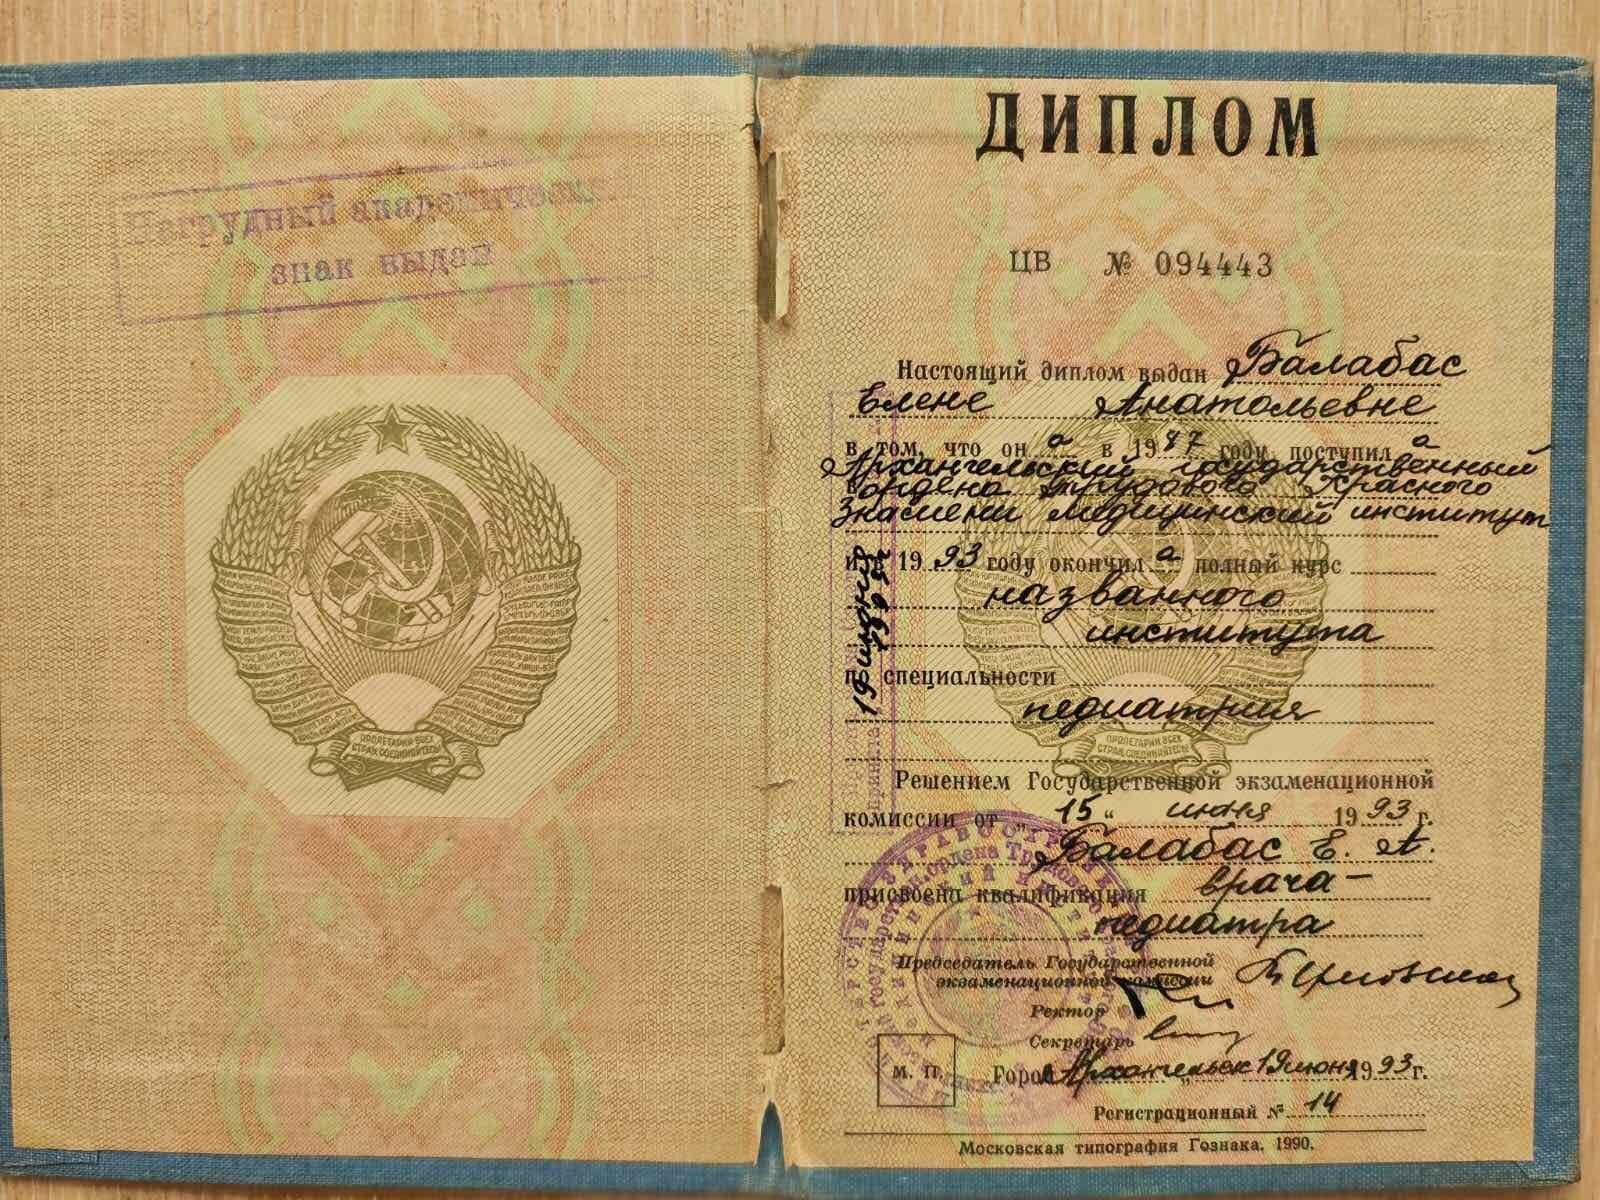 Нагрудный академический
знак выдан
ПРОЛЕТАРИИ ВСЕХ
СТРАН, СОЕДИНЯЙТЕСЬ!
ДИПЛОМ
ЦВ № 094443
Настоящий диплом выдан Балабас
Елене Анатольевне
в том, что он а в 1987 году поступил а
в Архангельский государственный
ордена Трудового Красного
Знамени медицинский институт
и в 1993 году окончил а полный курс
названного
института
по специальности
педиатрия
Решением Государственной экзаменационной
комиссии от „15“ июня 1993 г.
Балабас Е. А.
присвоена квалификация врача-
педиатра
Председатель Государственной
экзаменационной комиссии
Ректор
Секретарь
М. П. Город Архангельск 19 июня 1993 г.
Регистрационный № 14
Московская типография Гознака. 1990.
19 июня